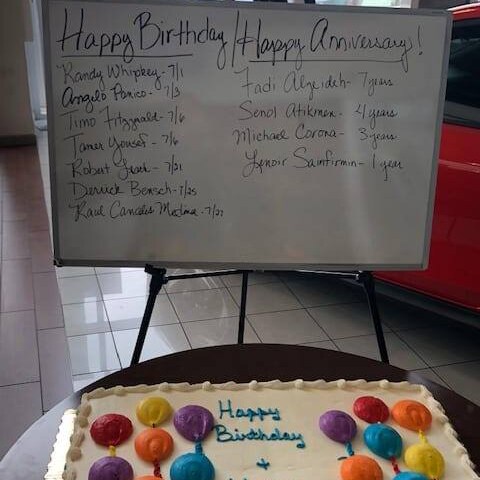 Happy Birthday / Happy Anniversary!
Randy Whipkey - 7/1
Angelo Panico - 7/3
Timo Fitzgerald - 7/6
Tamer Yousef - 7/6
Robert - 7/21
Derrick Bensch - 7/25
Raul Canales Medina - 7/27
Fadi Alzeideh - 7 years
Senol Atikmen - 4 years
Michael Corona - 3 years
Lenoir Sainfirmin - 1 year
Happy
Birthday
+